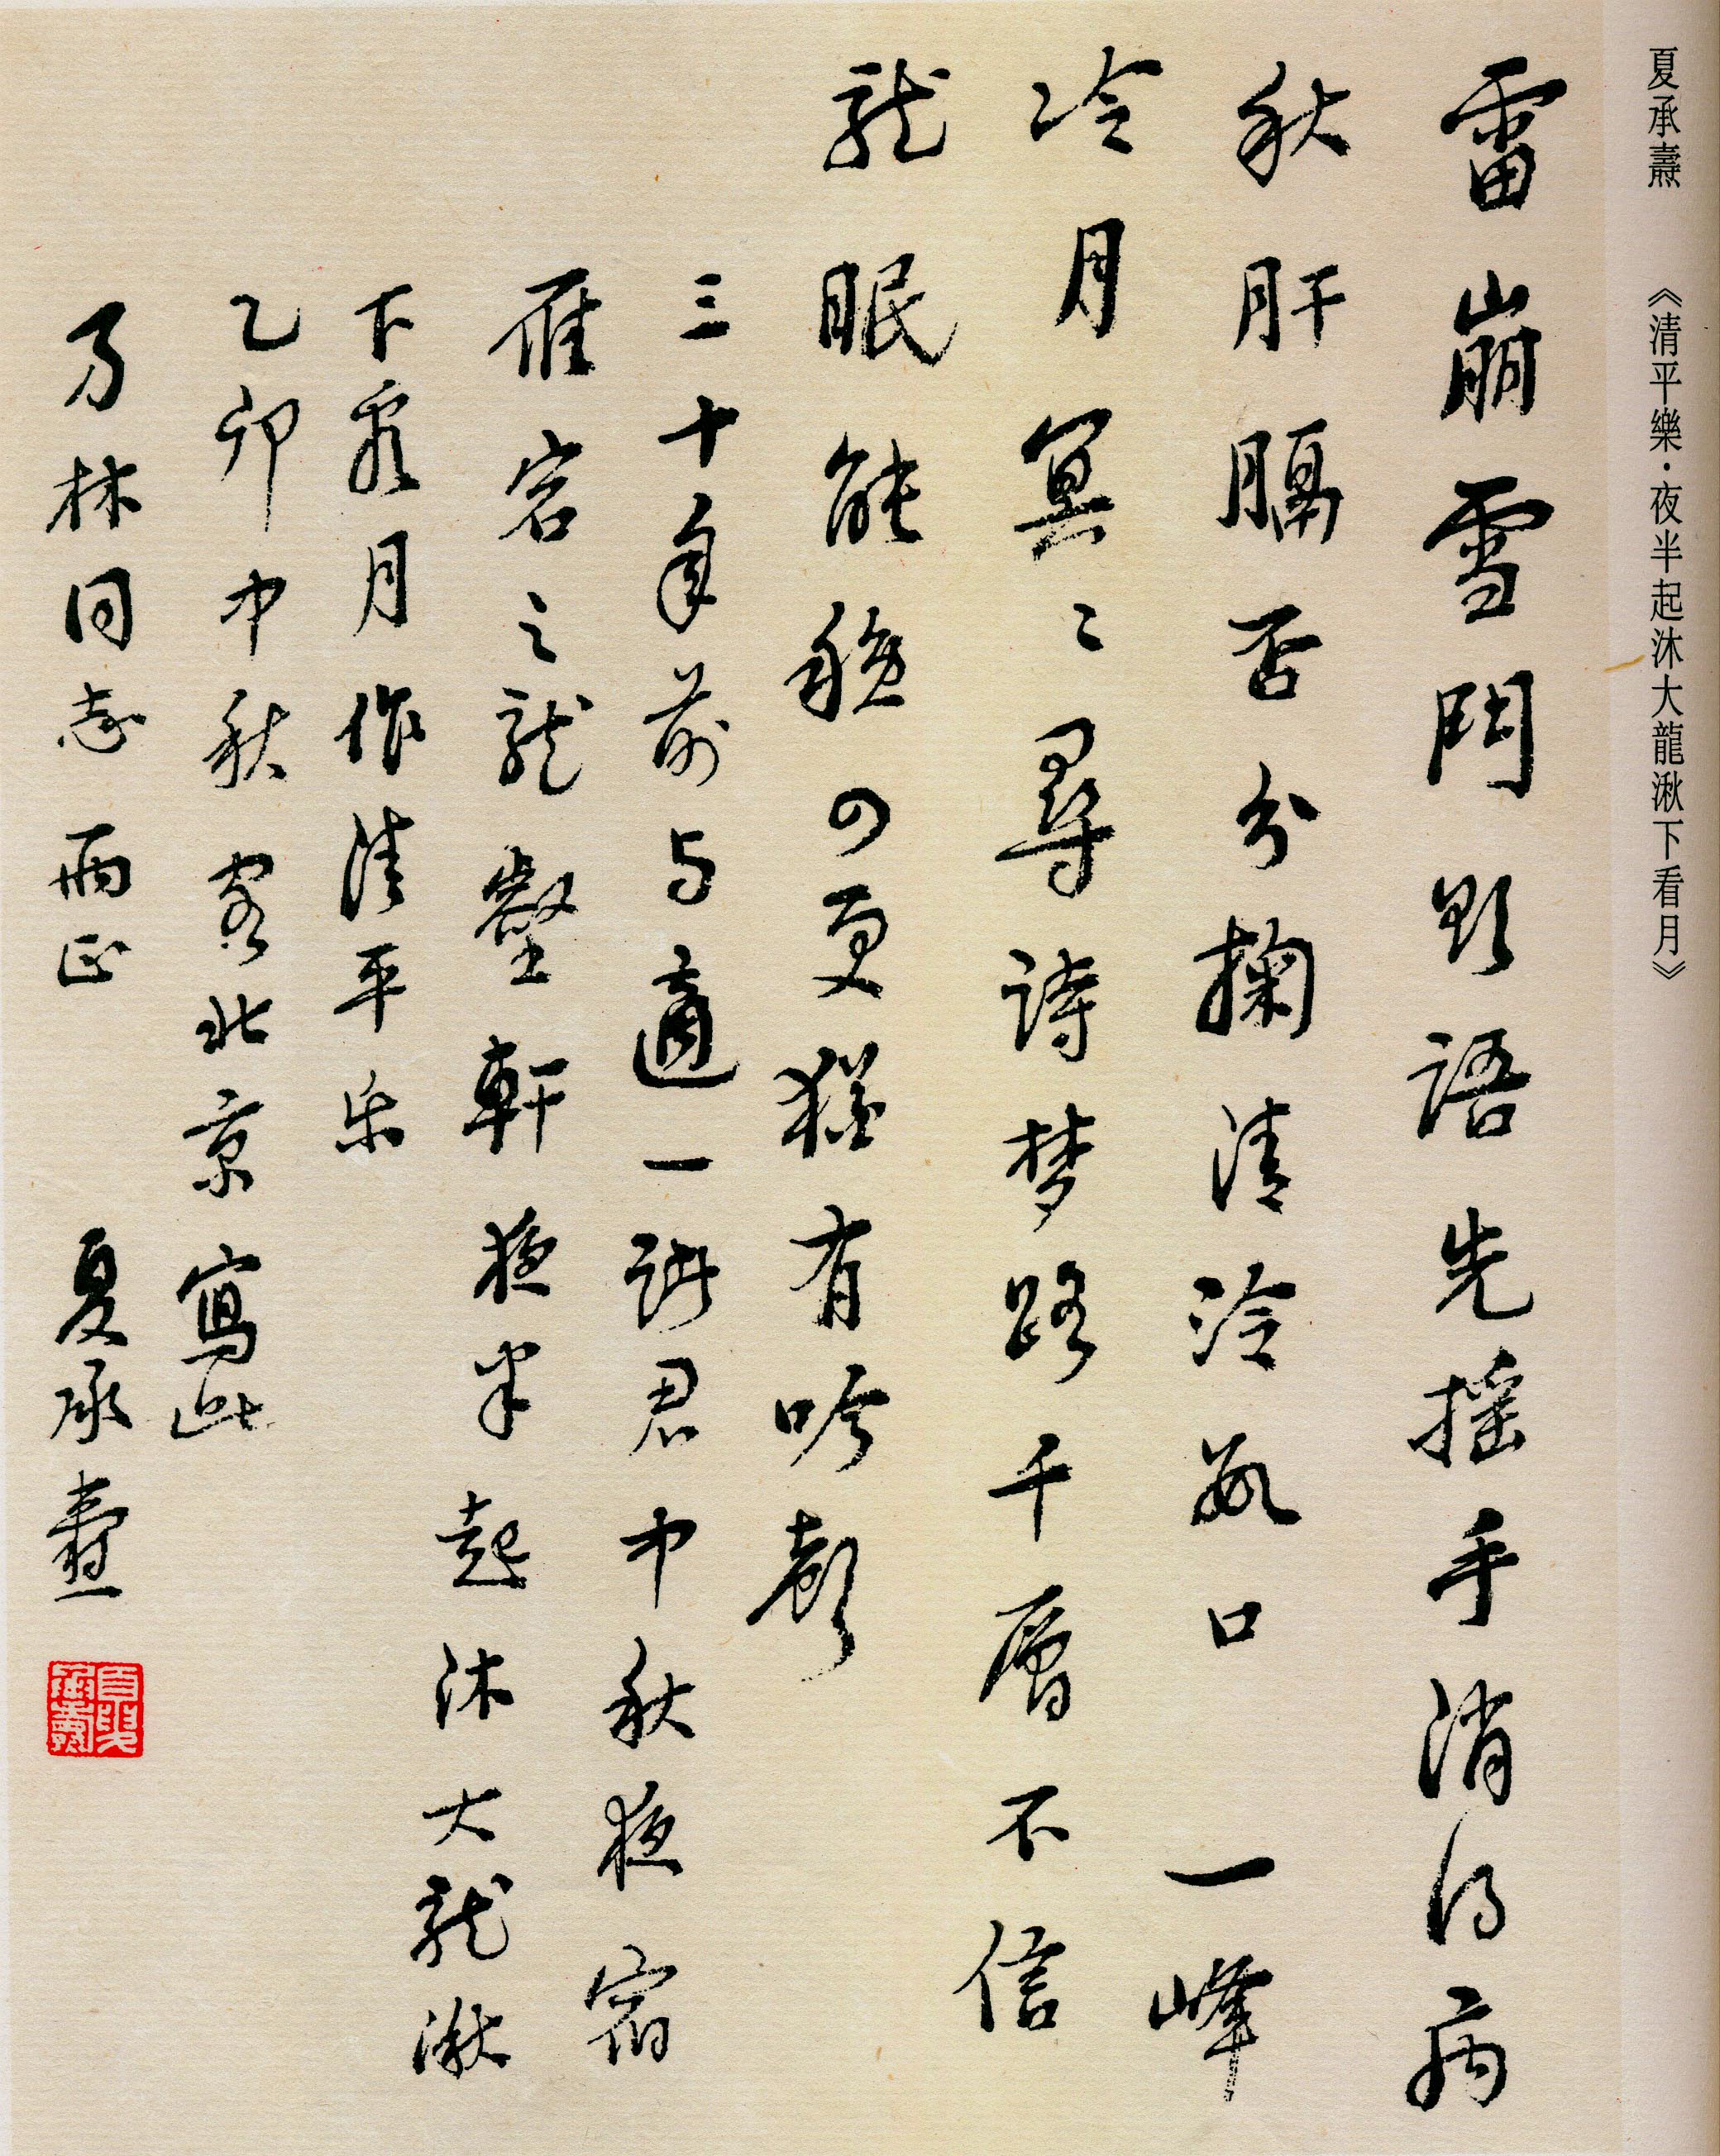 夏承燾 《清平樂·夜半起沐大龍湫下看月》
雷崩雪鬥欲語先搖手消得病
秋肝膈否分掬清泠数口 一峰
冷月冥〻尋詩梦路千層不信
龍眠能穩四更猶有吟聲
三十年前与適一諸君中秋夜宿
雁宕之龍壑軒夜半起沐大龍湫
下看月作清平乐
乙卯中秋客北京寫此
林同志兩正 夏承燾